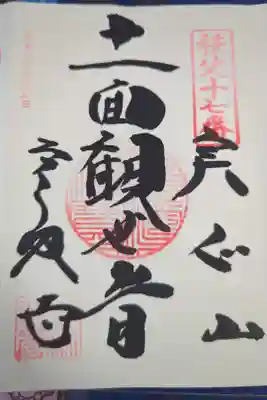 秩父十七番
実正山
十一面観世音
定林寺